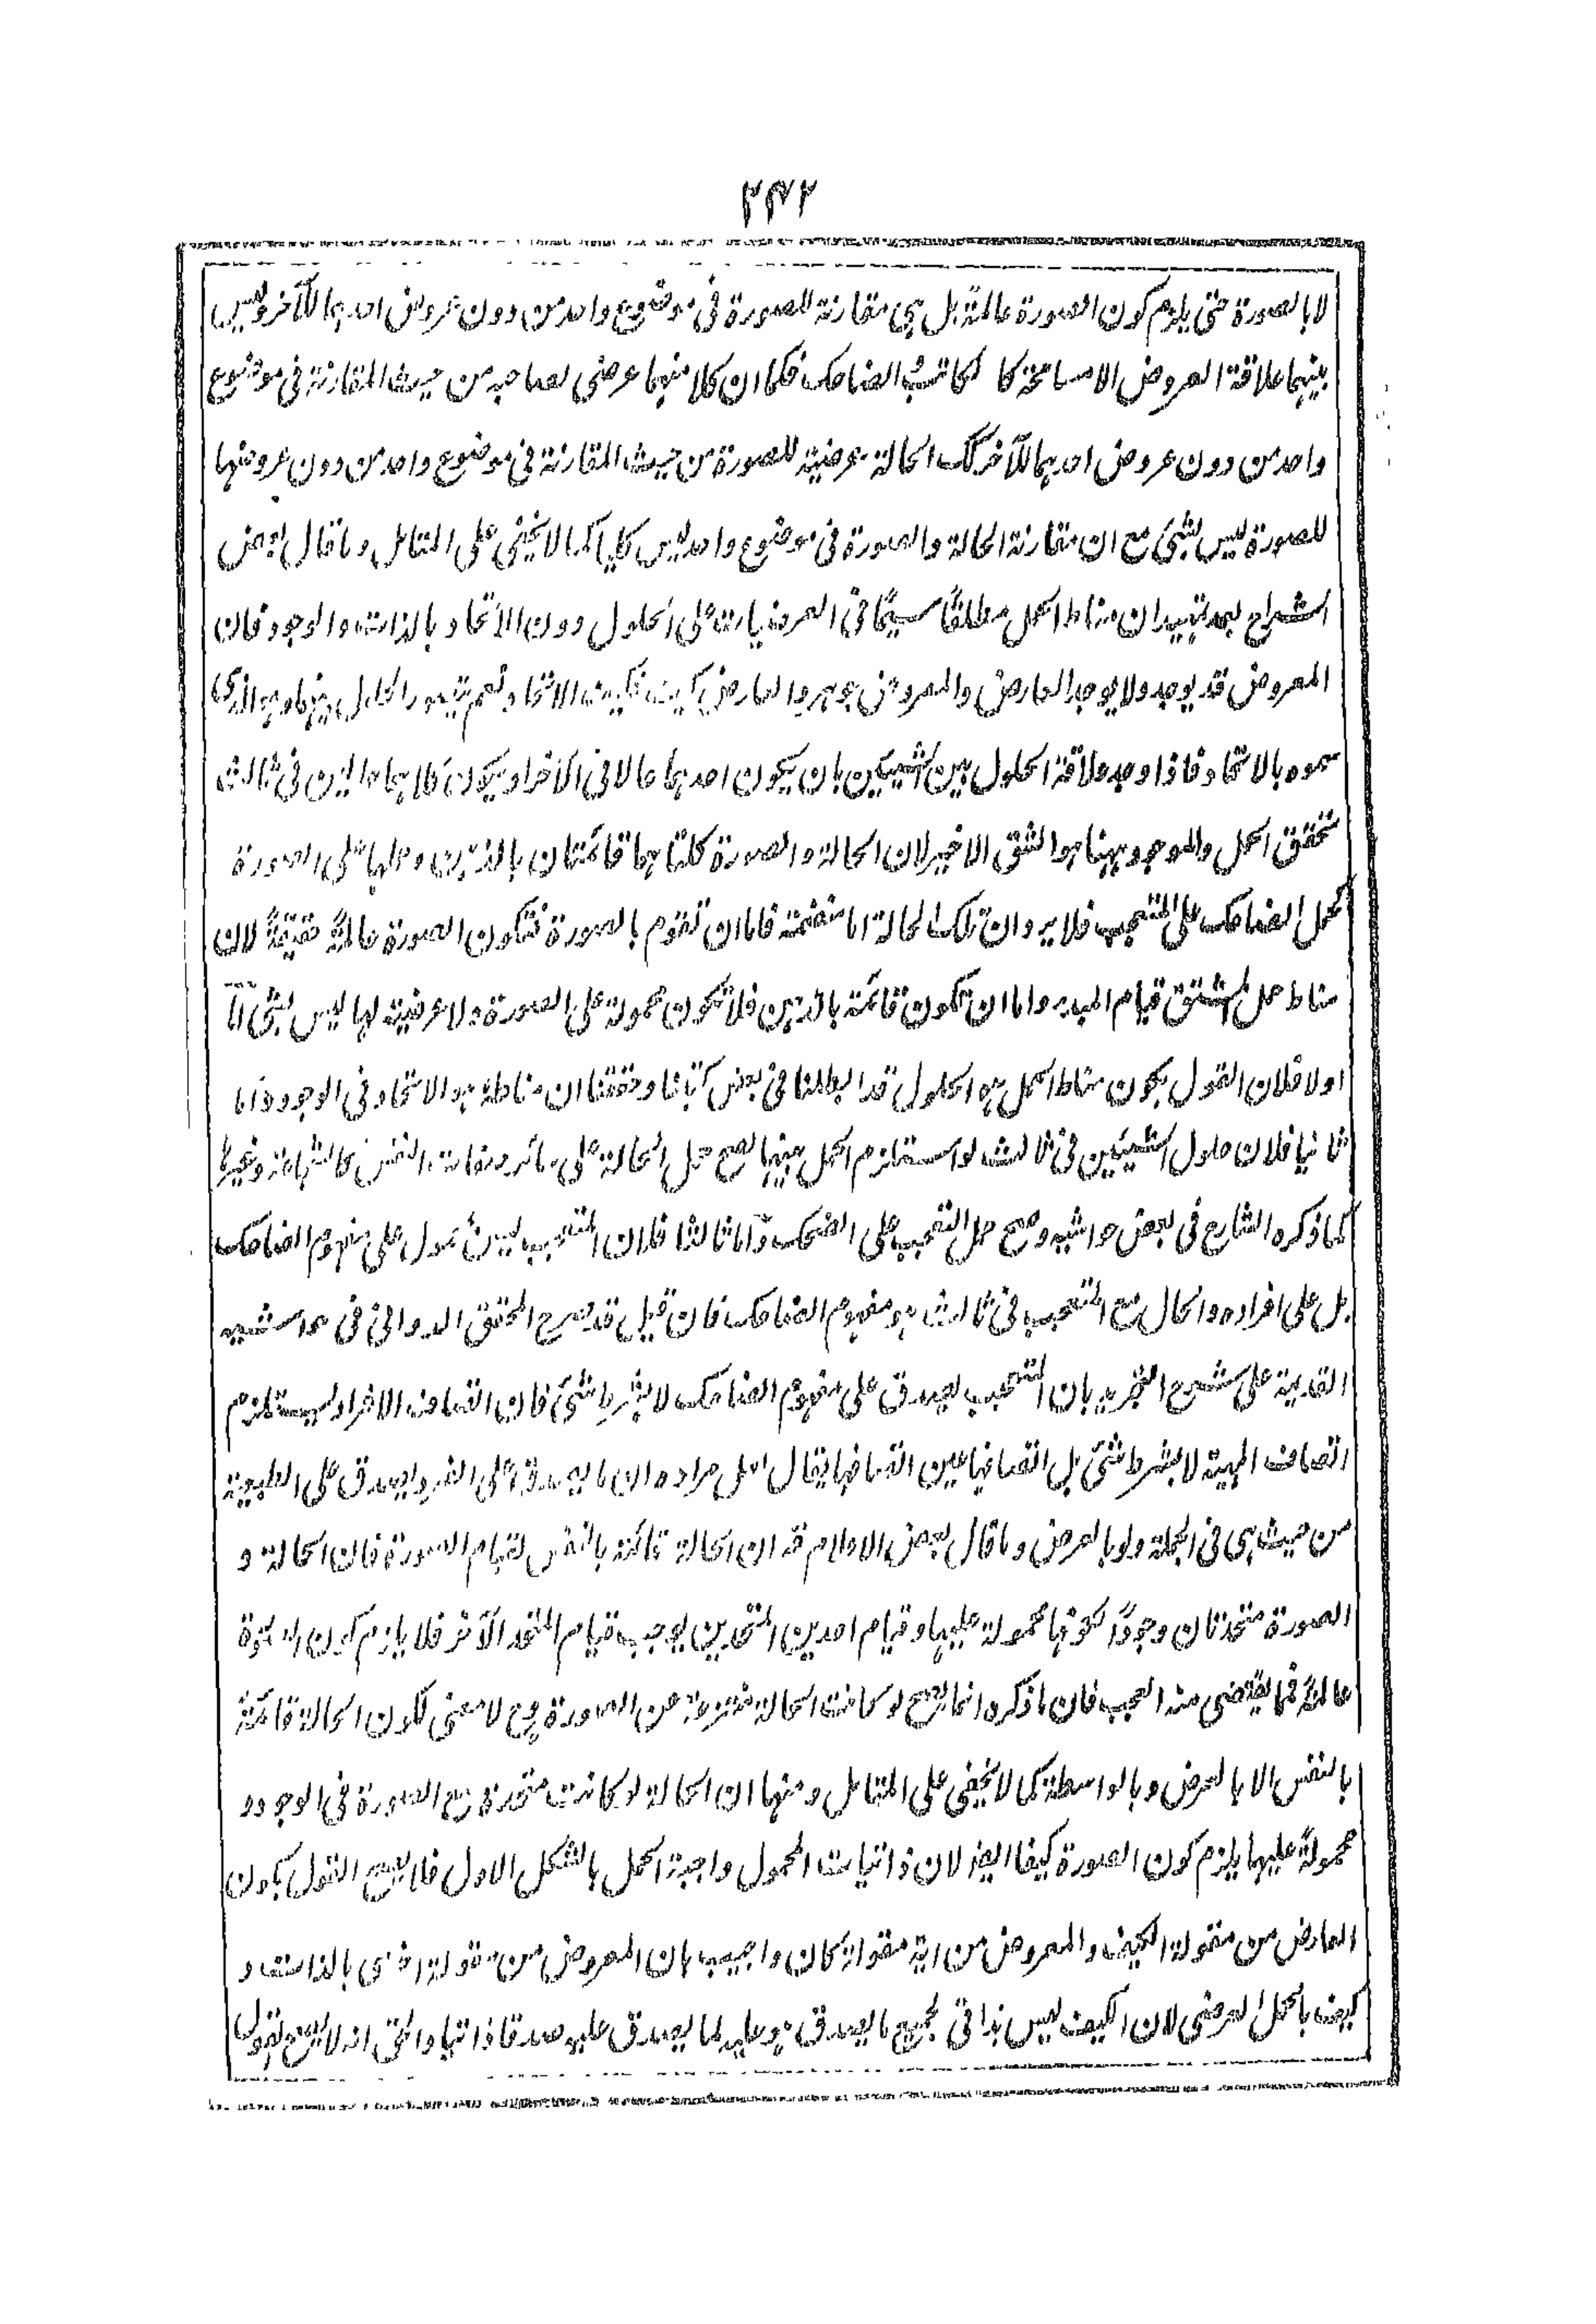 ٢٣٢
لا بالصورة حتى يلزم كون الصورة عالمة بل هي مقارنة للصورة في موضوع واحد من دون عروض احدهما للآخر وليس
بينهما علاقة العروض الا مسامحة كالكاتب الضاحك فكما ان كلا منهما عرضي لصاحبه من حيث المقارنة في موضوع
واحد من دون عروض احدهما للآخر كك الحالة عرضية للصورة من حيث المقارنة في موضوع واحد من دون عروضها
للصورة ليس بشئ مع ان مقارنة الحالة والصورة في موضوع واحد ليس كليا كما لا يخفى على المتامل وما قال بعض
الشراح بعد تمهيد ان مناط الحمل مطلقا سيما في العرضيات على الحلول دون الاتحاد بالذات والوجود فان
المعروض قد يوجد ولا يوجد العارض والمعروض جوهر والعارض كيف فكيف الاتحاد نعم يتصور الحلول بينهما وهو الذي
سموه بالاتحاد فاذا وجد علاقة الحلول بين الشيئين بان يكون احدهما حالا في الآخر او يكون كلاهما حالين في ثالث
تحقق الحمل والموجود ههنا هو الشق الاخير لان الحالة والصورة كلتاهما قائمتان بالذهن وحملها على الصورة
كحمل الضاحك على المتعجب فلا يرد ان تلك الحالة اما منضمة فاما ان تقوم بالصورة فتكون الصورة عالمة حقيقة لان
مناط حمل المشتق قيام المبدء واما ان تكون قائمة بالذهن فلا تكون محمولة على الصورة ولا عرضية لها ليس بشئ اما
اولا فلان القول بكون مناط الحمل هو الحلول قد ابطلنا في بعض كتبنا وحققنا ان مناطه هو الاتحاد في الوجود واما
ثانيا فلان حلول الشيئين في ثالث لو استلزم الحمل بينهما لصح حمل الحالة على سائر صفات النفس كالشجاعة وغيرها
كما ذكره الشارح في بعض حواشيه وصح حمل التعجب على الضحك واما ثالثا فلان المتعجب ليس بمحمول على مفهوم الضاحك
بل على افراده والحال مع المتعجب في ثالث هو مفهوم الضاحك فان قيل قد صرح المحقق الدواني في حواشيه
القديمة على شرح التجريد بان المتعجب يصدق على مفهوم الضاحك لا بشرط شئ فان اتصاف الافراد يستلزم
اتصاف المهية لا بشرط شئ بل اتصافها عين اتصافها يقال لعل مراده ان ما يصدق على الفرد يصدق على الطبيعة
من حيث هي في الجملة ولو بالعرض وما قال بعض الاعلام قد ان الحالة قائمة بالنفس لقيام الصورة فان الحالة و
الصورة متحدتان وجودا لكونها محمولة عليها وقيام احد من المتحدين يوجب قيام المتحد الآخر فلا يلزم كون الصورة
عالمة فما يقضى منه العجب فان ما ذكره انما يصح لو كانت الحالة منتزعة عن الصورة وح لا معنى لكون الحالة قائمة
بالنفس الا بالعرض وبالواسطة كما لا يخفى على المتامل ومنها ان الحالة لو كانت متحدة مع الصورة في الوجود و
محمولة عليها يلزم كون الصورة كيفا ايضا لان ذاتيات المحمول واجبة الحمل بالشكل الاول فلا يصح القول بكون
العارض من مقولة الكيف والمعروض من اية مقولة كان واجيب بان المعروض من مقولة اخرى بالذات و
كيف بالحمل العرضي لان الكيف ليس بذاتي لجميع ما يصدق هو عليه لما يصدق عليه صدقا ذاتيا والحق انه لا يصح القول